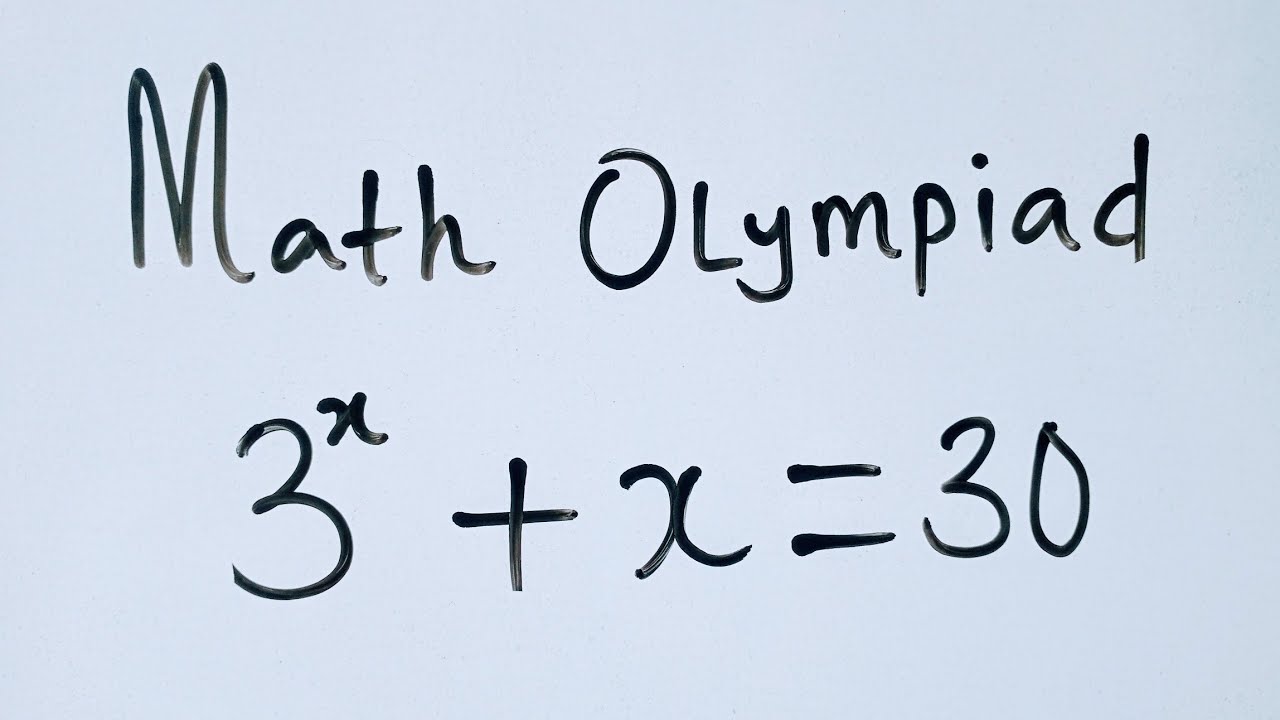 Math Olympiad
3ˣ + x = 30